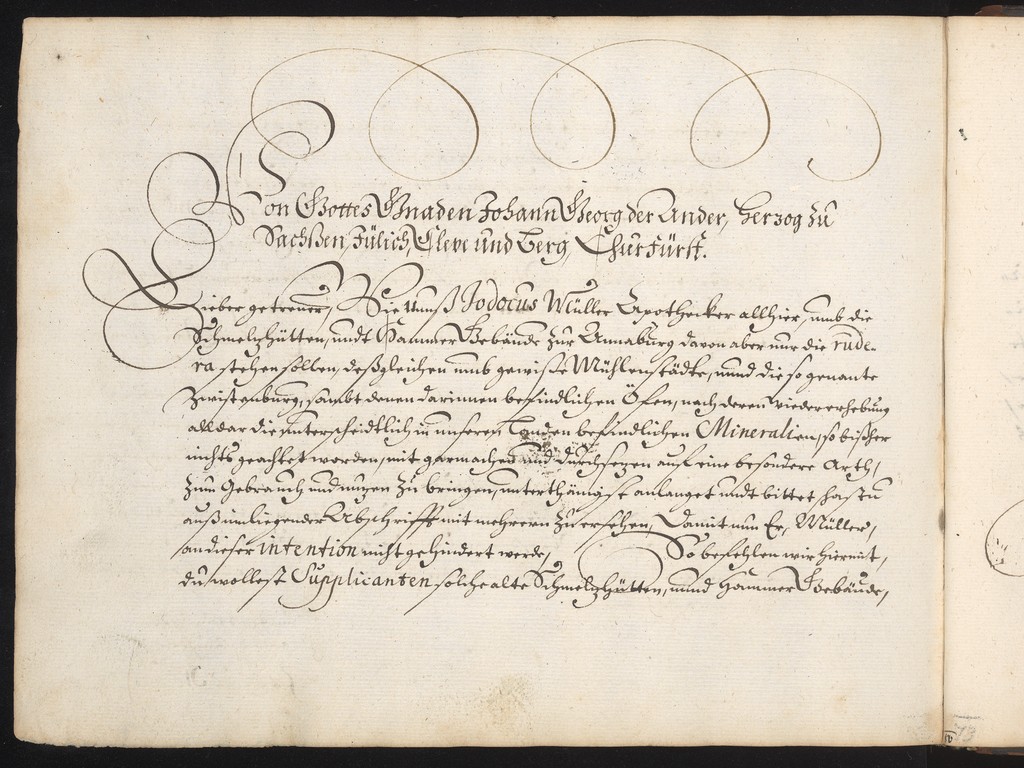 Von Gottes Gnaden Johann Georg der Ander, Herzog zu
Sachßen, Jülich, Cleve und Berg, Churfürst.
Lieber getreuer, Wie unnß Jodocus Müller Apothecker allhier, umb die
Schmeltzhütten, undt Hammer Gebäude zur Annaburg davon aber nur die rude-
ra stehen sollen, deßgleichen umb gewiße Mühlenstädte, unnd die so genante
Zwistenburg, sambt denen darinnen befindlichen Öfen, nach deren wiedererhebung
alldar die unterscheidtlich in unseren Landen befindlichen Mineralien, so bißher
nichts geachtet worden, mit garmachen und durchsezen auf eine besondere Arth,
zum Gebrauch und nuzen zu bringen, unterthänigst anlanget undt bittet, hastu
auß inliegender Abschrifft mit mehreren zu ersehen, Damit nun Er, Müller,
an dieser intention nicht gehindert werde, So befehlen wir hiermit,
du wollest Supplicanten solche alte Schmeltzhütten, unnd Hammer Gebäude,